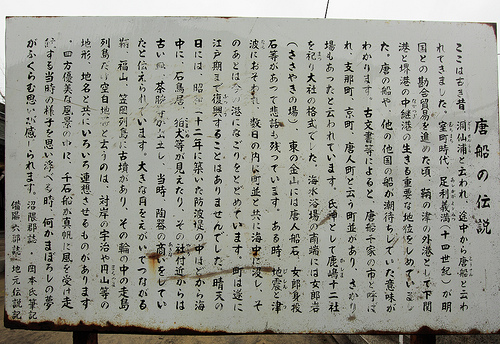 唐船の伝説
ここは古き昔、洞仙浦と云われ、途中から唐船と云わ
れてきました。室町時代、足利義満(十四世紀)が明
国との勘合貿易を進めた頃、鞆の津の外港として下関
港と堺港の中継港の生きる重要な地位をしめていまし
た。唐の船や、他の他国の船の潮待ちしていた意味が
わかります。古文書等によると、唐船千家の市と呼ば
れ、支那町、京町、唐人町と云う町並があり、さかり
場もあったと云われています。氏神として鹿嶋十二社
を祀り大社の格式でした。海水浴場の南端には女郎岩
(ささやきの場)、東の金山には唐人船石、女郎身投
石等があって悲話も残っています。ある時、地震と津
波におそわれ、数日の内に町並と共に海中に没し、そ
のあとは今の港になごりをとどめています。町は遂に
江戸期まで復興することはありませんでした。晴天の
日には、昭和二十二年に築いた防波堤の中ほどから海
中に、石鳥居、狛犬等が見えたり、その社付近からは
古い瓶、茶腕等が出土し、当時、陶器の商いをしてい
たと伝えられています。大きな月をえがいてつながる
鞆、福山、笠岡列島に古墳があり、その輪の中の走島
列島だけ空白地だと云うのは、対岸の宇治や円山等の
地形、地名と共にいろいろ連想させるものがあります
四方優美な風景の中に、千石船が真帆に風を受け走
続する当時の様子を思い浮べる時、何かまぼろしの夢
がふくらむ思いが感じられます。
沼隈郡誌・岡本氏筆記
備陽六郡誌・地元伝説記